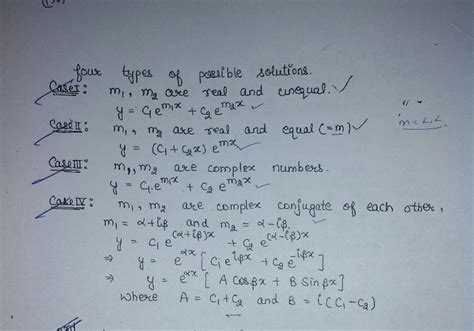 four types of possible solutions.
Case I: m₁, m₂ are real and unequal. ✓
y = c₁e^{m₁x} + c₂e^{m₂x} ✓
Case II: m₁, m₂ are real and equal (=m) ✓
y = (c₁ + c₂x) e^{mx} ✓
Case III: m₁, m₂ are complex numbers.
y = c₁e^{m₁x} + c₂e^{m₂x} ✓
Case IV: m₁, m₂ are complex conjugate of each other,
m₁ = α+iβ and m₂ = α-iβ.
y = c₁e^{(α+iβ)x} + c₂e^{(α-iβ)x}
⇒ y = e^{αx} [c₁e^{iβx} + c₂e^{-iβx}]
⇒ y = e^{αx} [A Cosβx + B Sinβx]
where A = c₁+c₂ and B = i(c₁-c₂)